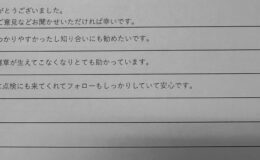 がとうございました。
ご意見などお聞かせいただければ幸いです。
わかりやすかったし知り合いにも勧めたいです。
草が生えてこなくなりとても助かっています。
点検にも来てくれてフォローもしっかりしていて安心です。